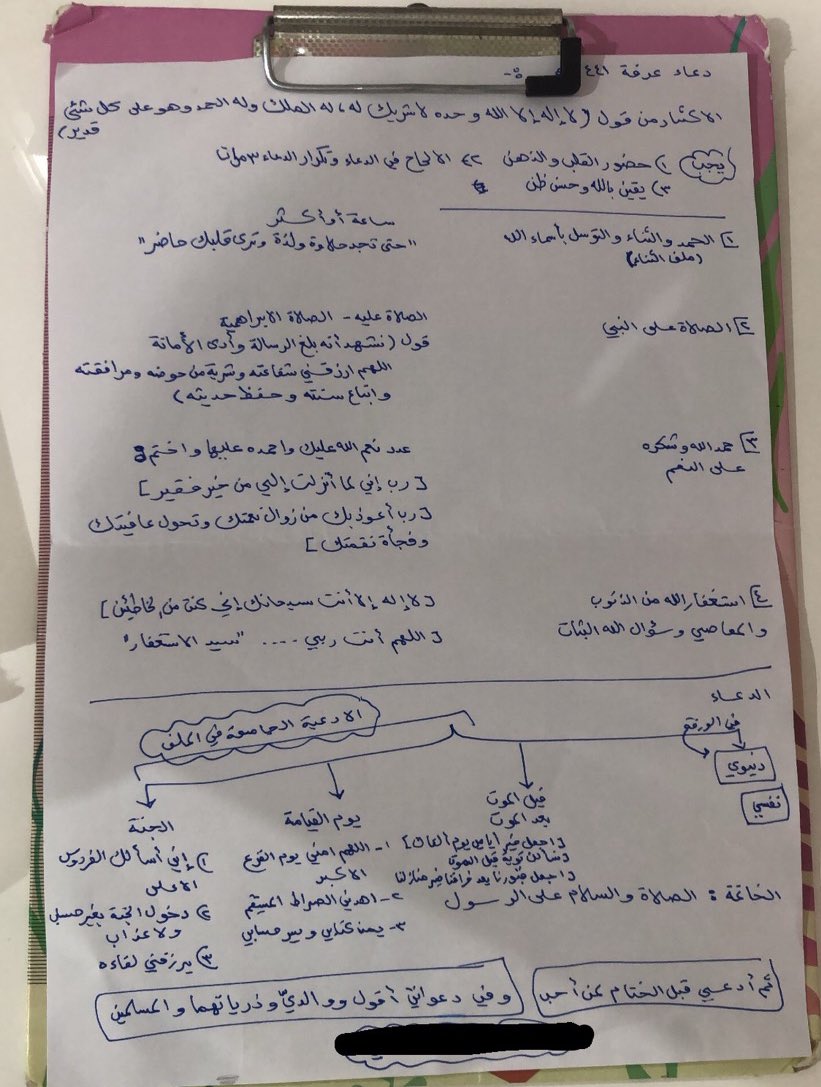 دعاء عرفة ١٤٤١ :-
الاكثار من قول (لا إله إلا الله وحده لا شريك له، له الملك وله الحمد وهو على كل شئ قدير)
يجب ١) حضور القلب والذهن ٢) الالحاح في الدعاء وتكرار الدعاء ٣ مرات
٣) يقين بالله وحسن ظن
ساعة أو أكثر
١ الحمد والثناء والتوسل بأسماء الله "حتى تجد حلاوة ولذة وترى قلبك حاضر"
(ملف الثناء)
الصلاة عليه - الصلاة الابراهيمية
٢ الصلاة على النبي
قول (نشهد أنه بلغ الرسالة وأدى الأمانة
اللهم ارزقني شفاعته وشربة من حوضه ومرافقته
واتباع سنته وحفظ حديثه)
٣ حمد الله وشكره عدد نعم الله عليك واحمده عليها واختم :
على النعم
[رب إني لما أنزلت إلي من خير فقير]
[رب أعوذ بك من زوال نعمتك وتحول عافيتك
وفجأة نقمتك]
٤ استغفار الله من الذنوب [لا إله إلا أنت سبحانك إني كنت من الخاطئين]
والمعاصي وسؤال الله الثبات [اللهم أنت ربي .... "سيد الاستغفار"
الدعاء
في الورقة
الادعية الجامعة في الملف
دنيوي
نفسي
قبل الموت
بعد الموت
[اجعل خير أيامي يوم ألقاك]
[نسألك توبة قبل الموت
[اجعل قبورنا بعد فراقنا خير منازلنا
يوم القيامة
١- اللهم امني يوم الفزع
الاكبر
٢- اهدني الصراط المستقيم
٣- يمن كتابي ويسر حسابي
الجنة
١) إني أسألك الفردوس
الاعلى
٢) دخول الجنة بغير حساب
ولا عذاب
٣) يرزقني لقاءه
الخاتمة : الصلاة والسلام على الرسول
ثم أدعي قبل الختام لمن أحب
وفي دعواتي أقول ووالديّ وذرياتهما والمسلمين